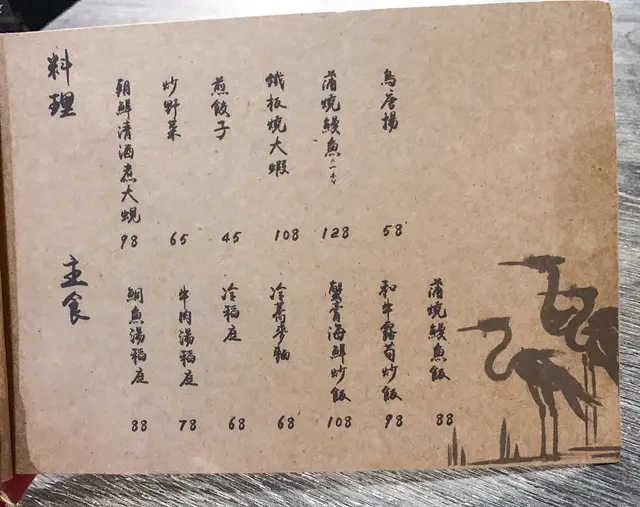 料理
朝鮮清酒煮大蜆 98
炒野菜 65
煎餃子 45
鐵板燒大蝦 108
蒲燒鰻魚(一本) 128
鳥唐揚 58
主食
鯛魚湯稻庭 88
牛肉湯稻庭 78
冷稻庭 68
冷喬麥麵 68
蟹膏海鮮炒飯 108
和牛露荀炒飯 98
蒲燒鰻魚飯 88